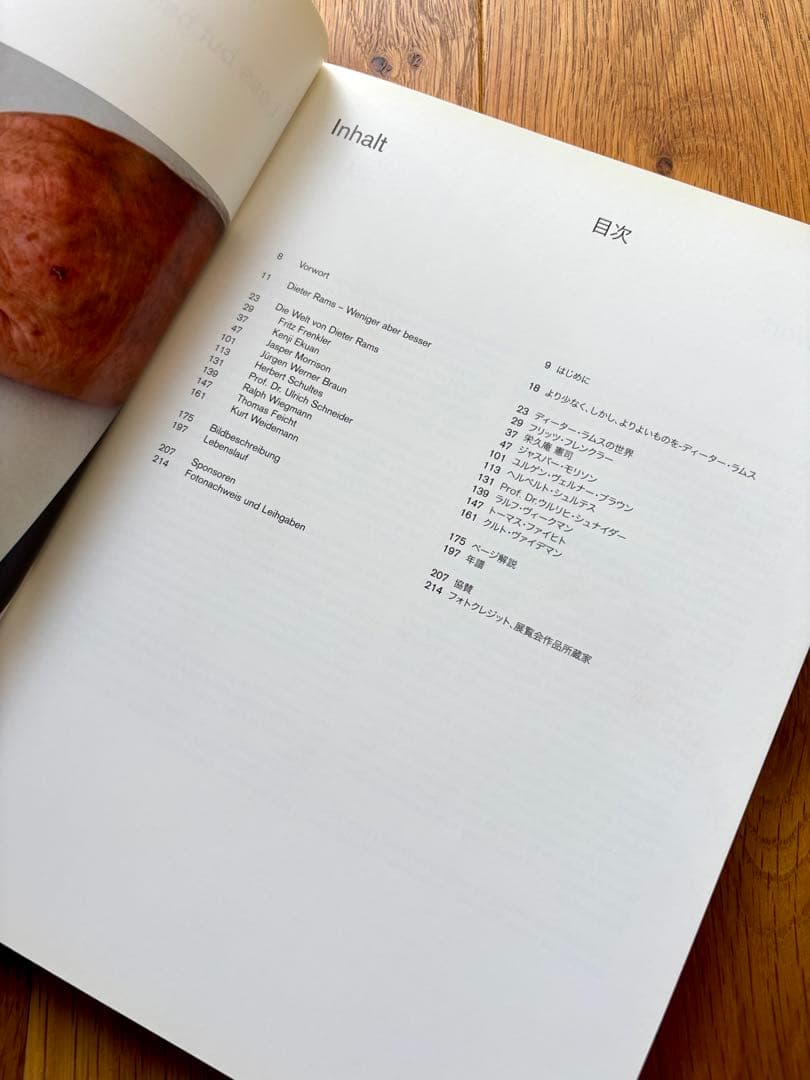 Less but bet
Inhalt
目次
8 Vorwort
11 Dieter Rams – Weniger aber besser
23 Die Welt von Dieter Rams
29 Fritz Frenkler
37 Kenji Ekuan
47 Jasper Morrison
101 Jürgen Werner Braun
113 Herbert Schultes
131 Prof. Dr. Ulrich Schneider
139 Ralph Wiegmann
147 Thomas Feicht
161 Kurt Weidemann
175 Bildbeschreibung
197 Lebenslauf
207 Sponsoren
214 Fotonachweis und Leihgaben
9 はじめに
18 より少なく、しかし、よりよいものを-ディーター・ラムス
23 ディーター・ラムスの世界
29 フリッツ・フレンクラー
37 栄久庵 憲司
47 ジャスパー・モリソン
101 ユルゲン・ヴェルナー・ブラウン
113 ヘルベルト・シュルテス
131 Prof. Dr.ウルリヒ・シュナイダー
139 ラルフ・ヴィークマン
147 トーマス・ファイヒト
161 クルト・ヴァイデマン
175 ページ解説
197 年譜
207 協賛
214 フォトクレジット、展覧会作品所蔵家